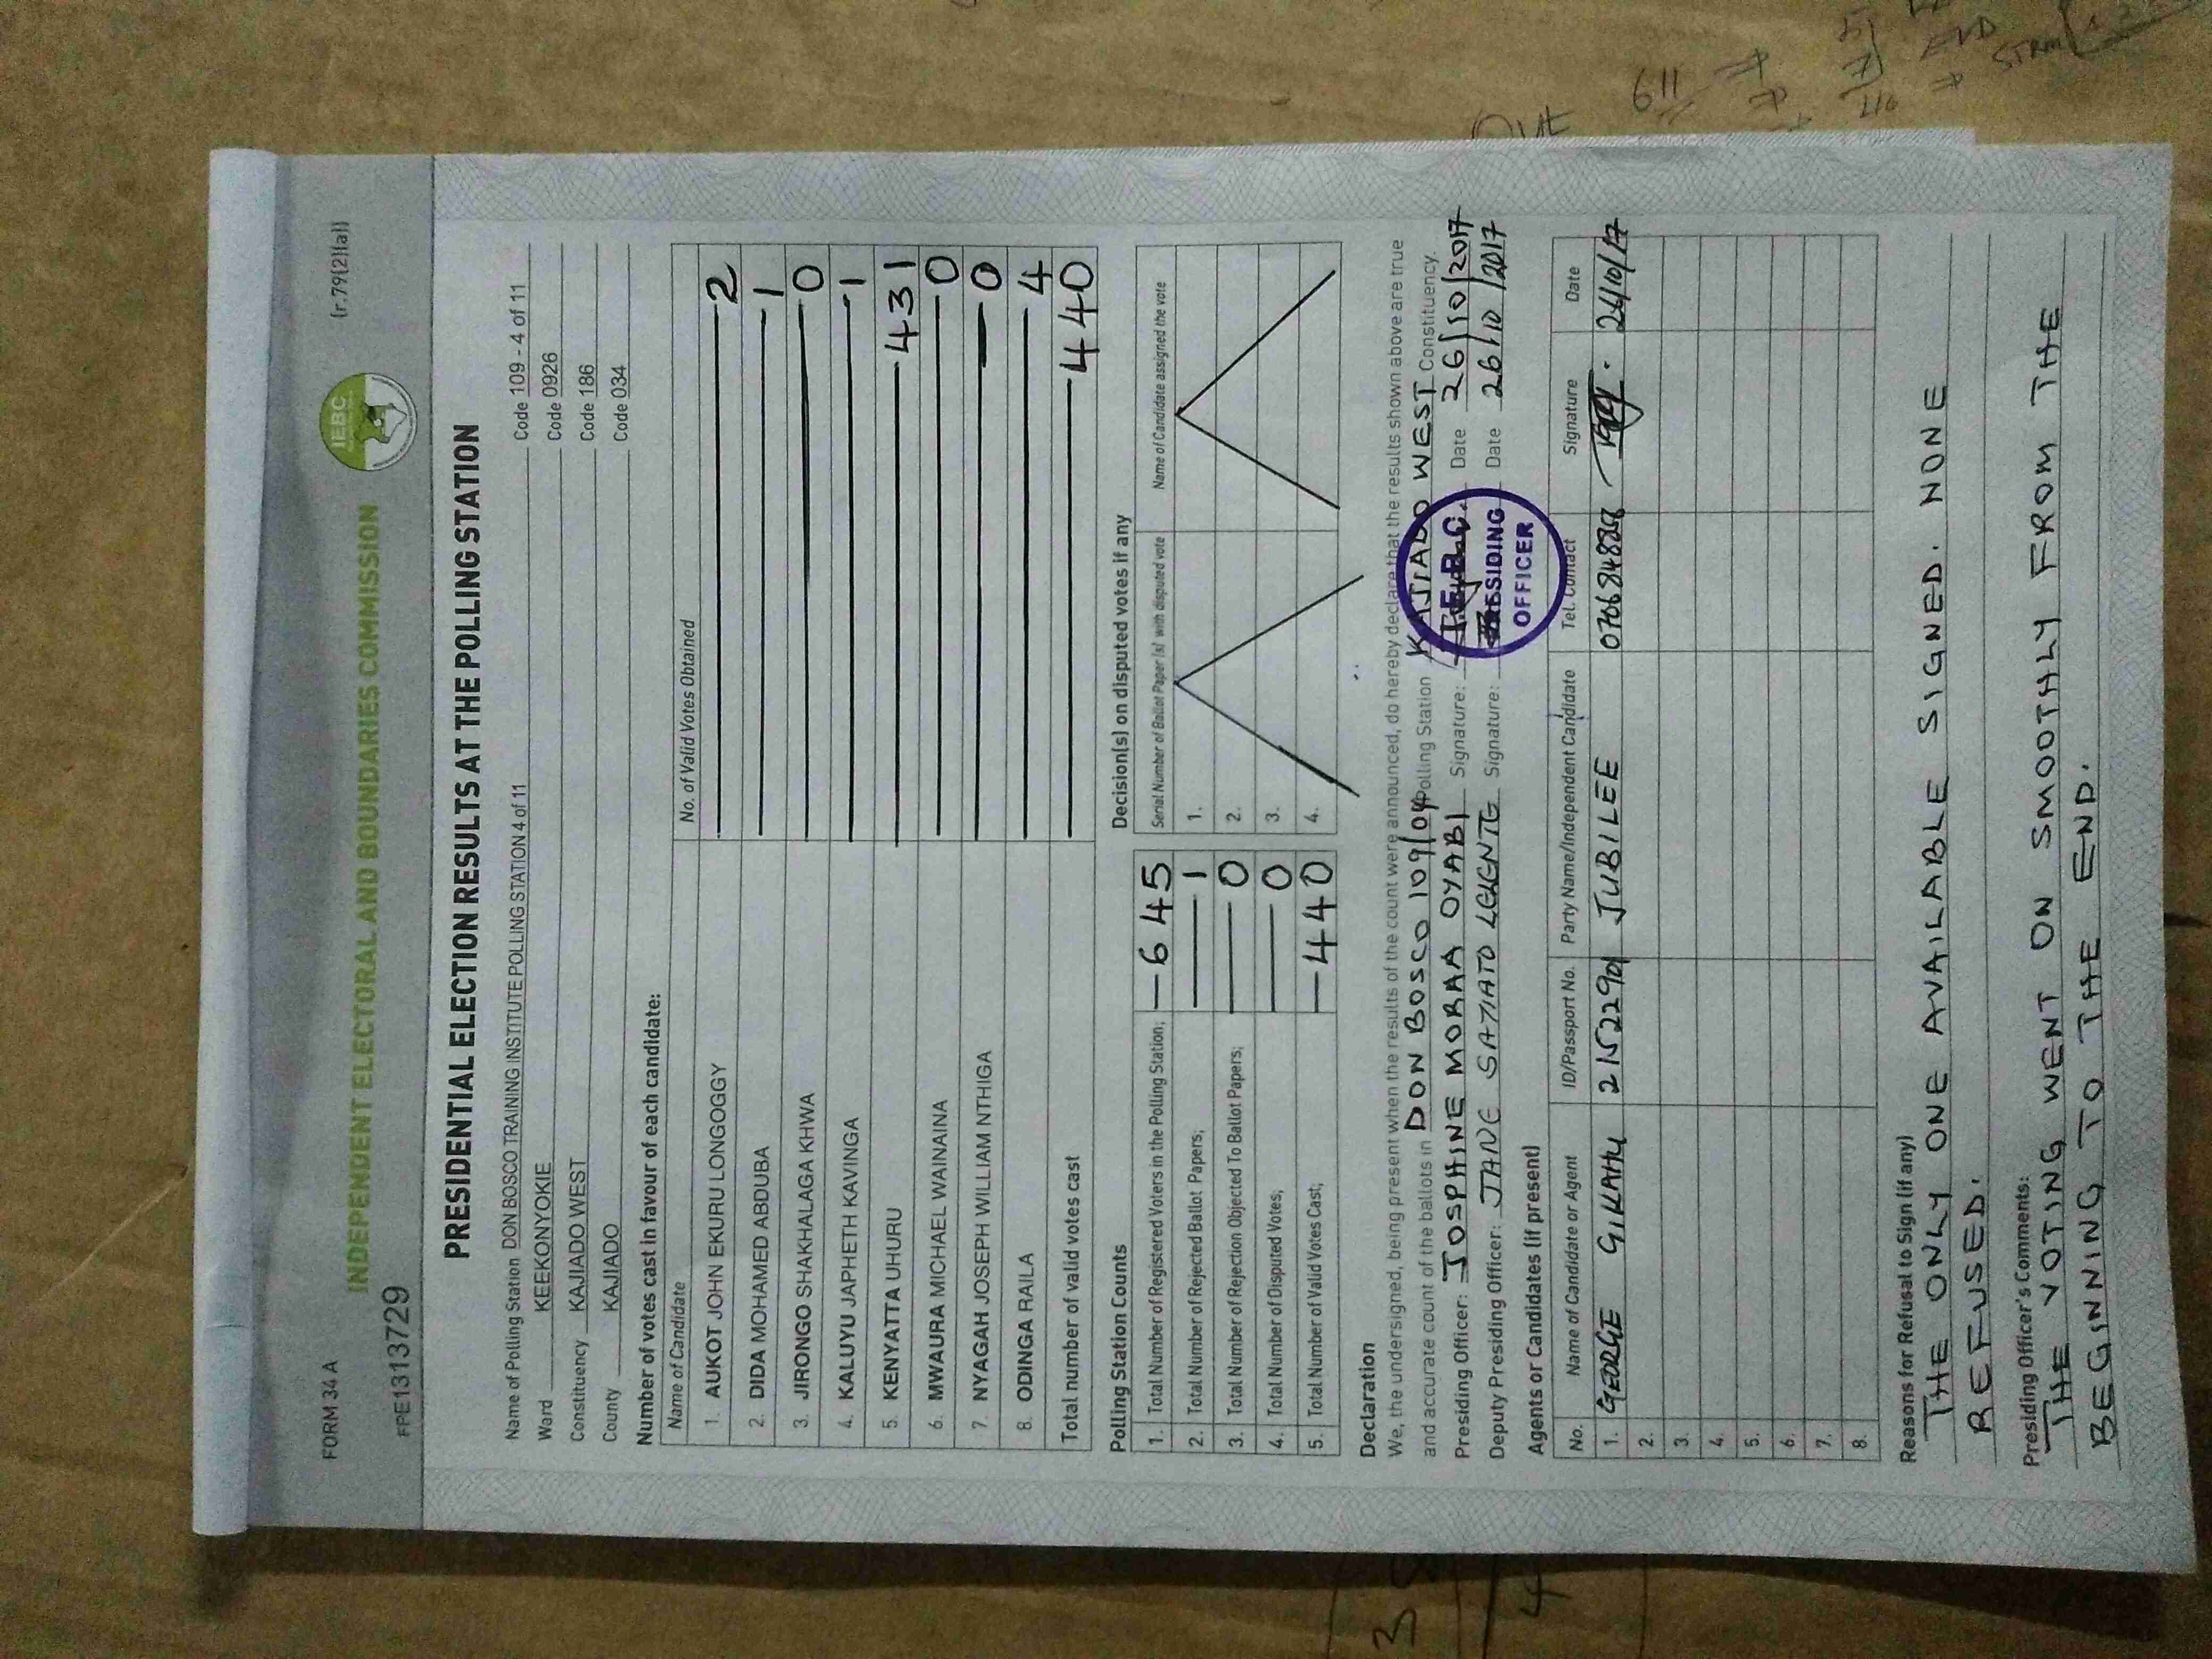 FORM 34 A
(r.79(2)(a))
IEBC
INDEPENDENT ELECTORAL AND BOUNDARIES COMMISSION
FPE1313729
PRESIDENTIAL ELECTION RESULTS AT THE POLLING STATION
Name of Polling Station DON BOSCO TRAINING INSTITUTE POLLING STATION 4 of 11 Code 109 - 4 of 11
Ward KEEKONYOKIE Code 0926
Constituency KAJIADO WEST Code 186
County KAJIADO Code 034
Number of votes cast in favour of each candidate:
Name of Candidate No. of Valid Votes Obtained
1. AUKOT JOHN EKURU LONGOGGY 2
2. DIDA MOHAMED ABDUBA 1
3. JIRONGO SHAKHALAGA KHWA 0
4. KALUYU JAPHETH KAVINGA 1
5. KENYATTA UHURU 431
6. MWAURA MICHAEL WAINAINA 0
7. NYAGAH JOSEPH WILLIAM NTHIGA 0
8. ODINGA RAILA 4
Total number of valid votes cast 440
Polling Station Counts
1. Total Number of Registered Voters in the Polling Station; 645
2. Total Number of Rejected Ballot Papers; 1
3. Total Number of Rejection Objected To Ballot Papers; 0
4. Total Number of Disputed Votes; 0
5. Total Number of Valid Votes Cast; 440
Decision(s) on disputed votes if any
Serial Number of Ballot Paper (s) with disputed vote Name of Candidate assigned the vote
1.
2.
3.
4.
Declaration
We, the undersigned, being present when the results of the count were announced, do hereby declare that the results shown above are true
and accurate count of the ballots in DON BOSCO 109/04 Polling Station KAJIADO WEST Constituency.
Presiding Officer: JOSPHINE MORAA OYABI Signature: Date 26/10/2017
Deputy Presiding Officer: JANE SATIATO Signature: Date 26/10/2017
I.E.B.C.
PRESIDING
OFFICER
Agents or Candidates (if present)
No. Name of Candidate or Agent ID/Passport No. Party Name/Independent Candidate Tel. Contact Signature Date
1. GEORGE GIKAHU JUBILEE 26/10/17
2.
3.
4.
5.
6.
7.
8.
Reasons for Refusal to Sign (if any)
THE ONLY ONE AVAILABLE SIGNED. NONE
REFUSED.
Presiding Officer's Comments:
THE VOTING WENT ON SMOOTHLY FROM THE
BEGINNING TO THE END.
119